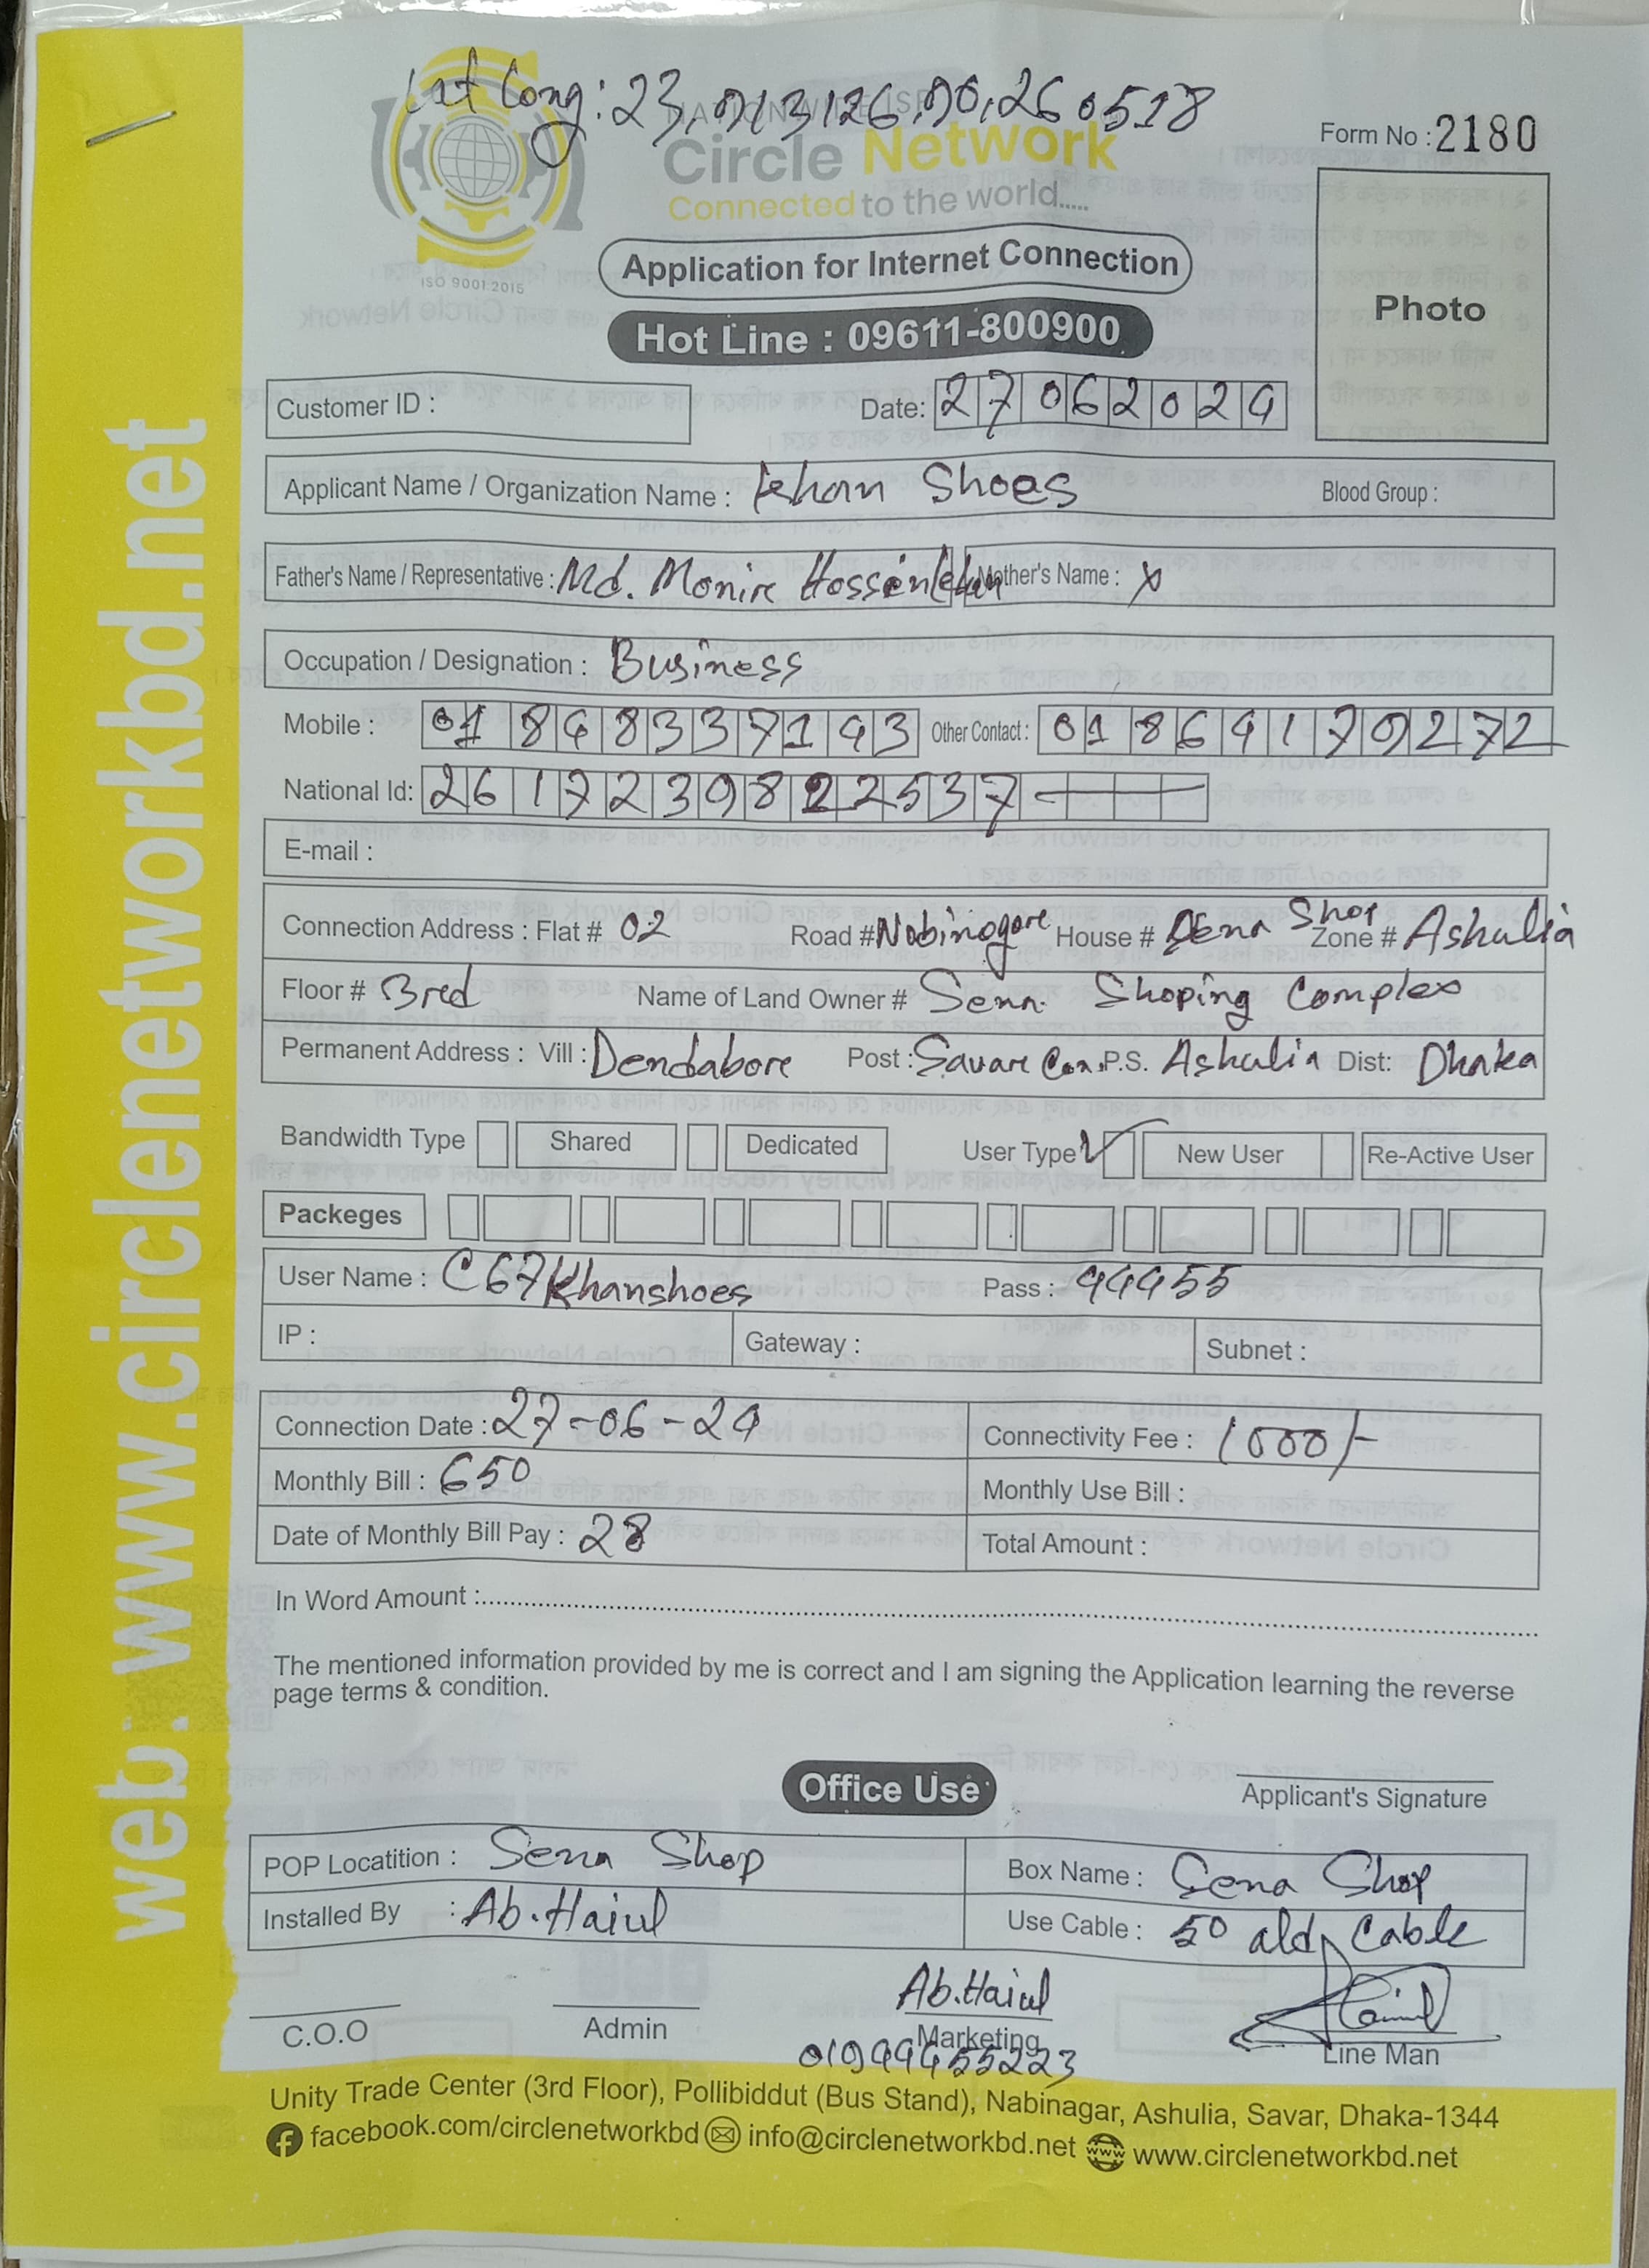 Lat Long: 23.913126,90.260518
NATIONWIDE ISP
Circle Network
Connected to the world.....
ISO 9001:2015
Form No : 2180
Photo
Application for Internet Connection
Hot Line : 09611-800900
Customer ID :
Date: 27062024
Applicant Name / Organization Name : Khan Shoes Blood Group :
Father's Name / Representative : Md. Monir Hossen Khan Mother's Name : x
Occupation / Designation : Business
Mobile : 01848337143 Other Contact : 01864179272
National Id: 2617239822537
E-mail :
Connection Address : Flat # 02 Road # Nobinogore House # Sena Shop Zone # Ashulia
Floor # 3red Name of Land Owner # Sena Shoping Complex
Permanent Address : Vill : Dendabore Post : Savare Can. P.S. Ashulia Dist: Dhaka
Bandwidth Type Shared Dedicated User Type New User Re-Active User
Packeges
User Name : C67Khanshoes Pass : 44455
IP : Gateway : Subnet :
Connection Date : 27-06-24 Connectivity Fee : 1000/-
Monthly Bill : 650 Monthly Use Bill :
Date of Monthly Bill Pay : 28 Total Amount :
In Word Amount :
The mentioned information provided by me is correct and I am signing the Application learning the reverse
page terms & condition.
Applicant's Signature
Office Use
POP Locatition : Sena Shop Box Name : Sena Shop
Installed By : Ab.Haiul Use Cable : 50 ald Cable
Ab.Haiul
C.O.O Admin Marketing Line Man
01944455223
Unity Trade Center (3rd Floor), Pollibiddut (Bus Stand), Nabinagar, Ashulia, Savar, Dhaka-1344
facebook.com/circlenetworkbd info@circlenetworkbd.net www.circlenetworkbd.net
web: www.circlenetworkbd.net